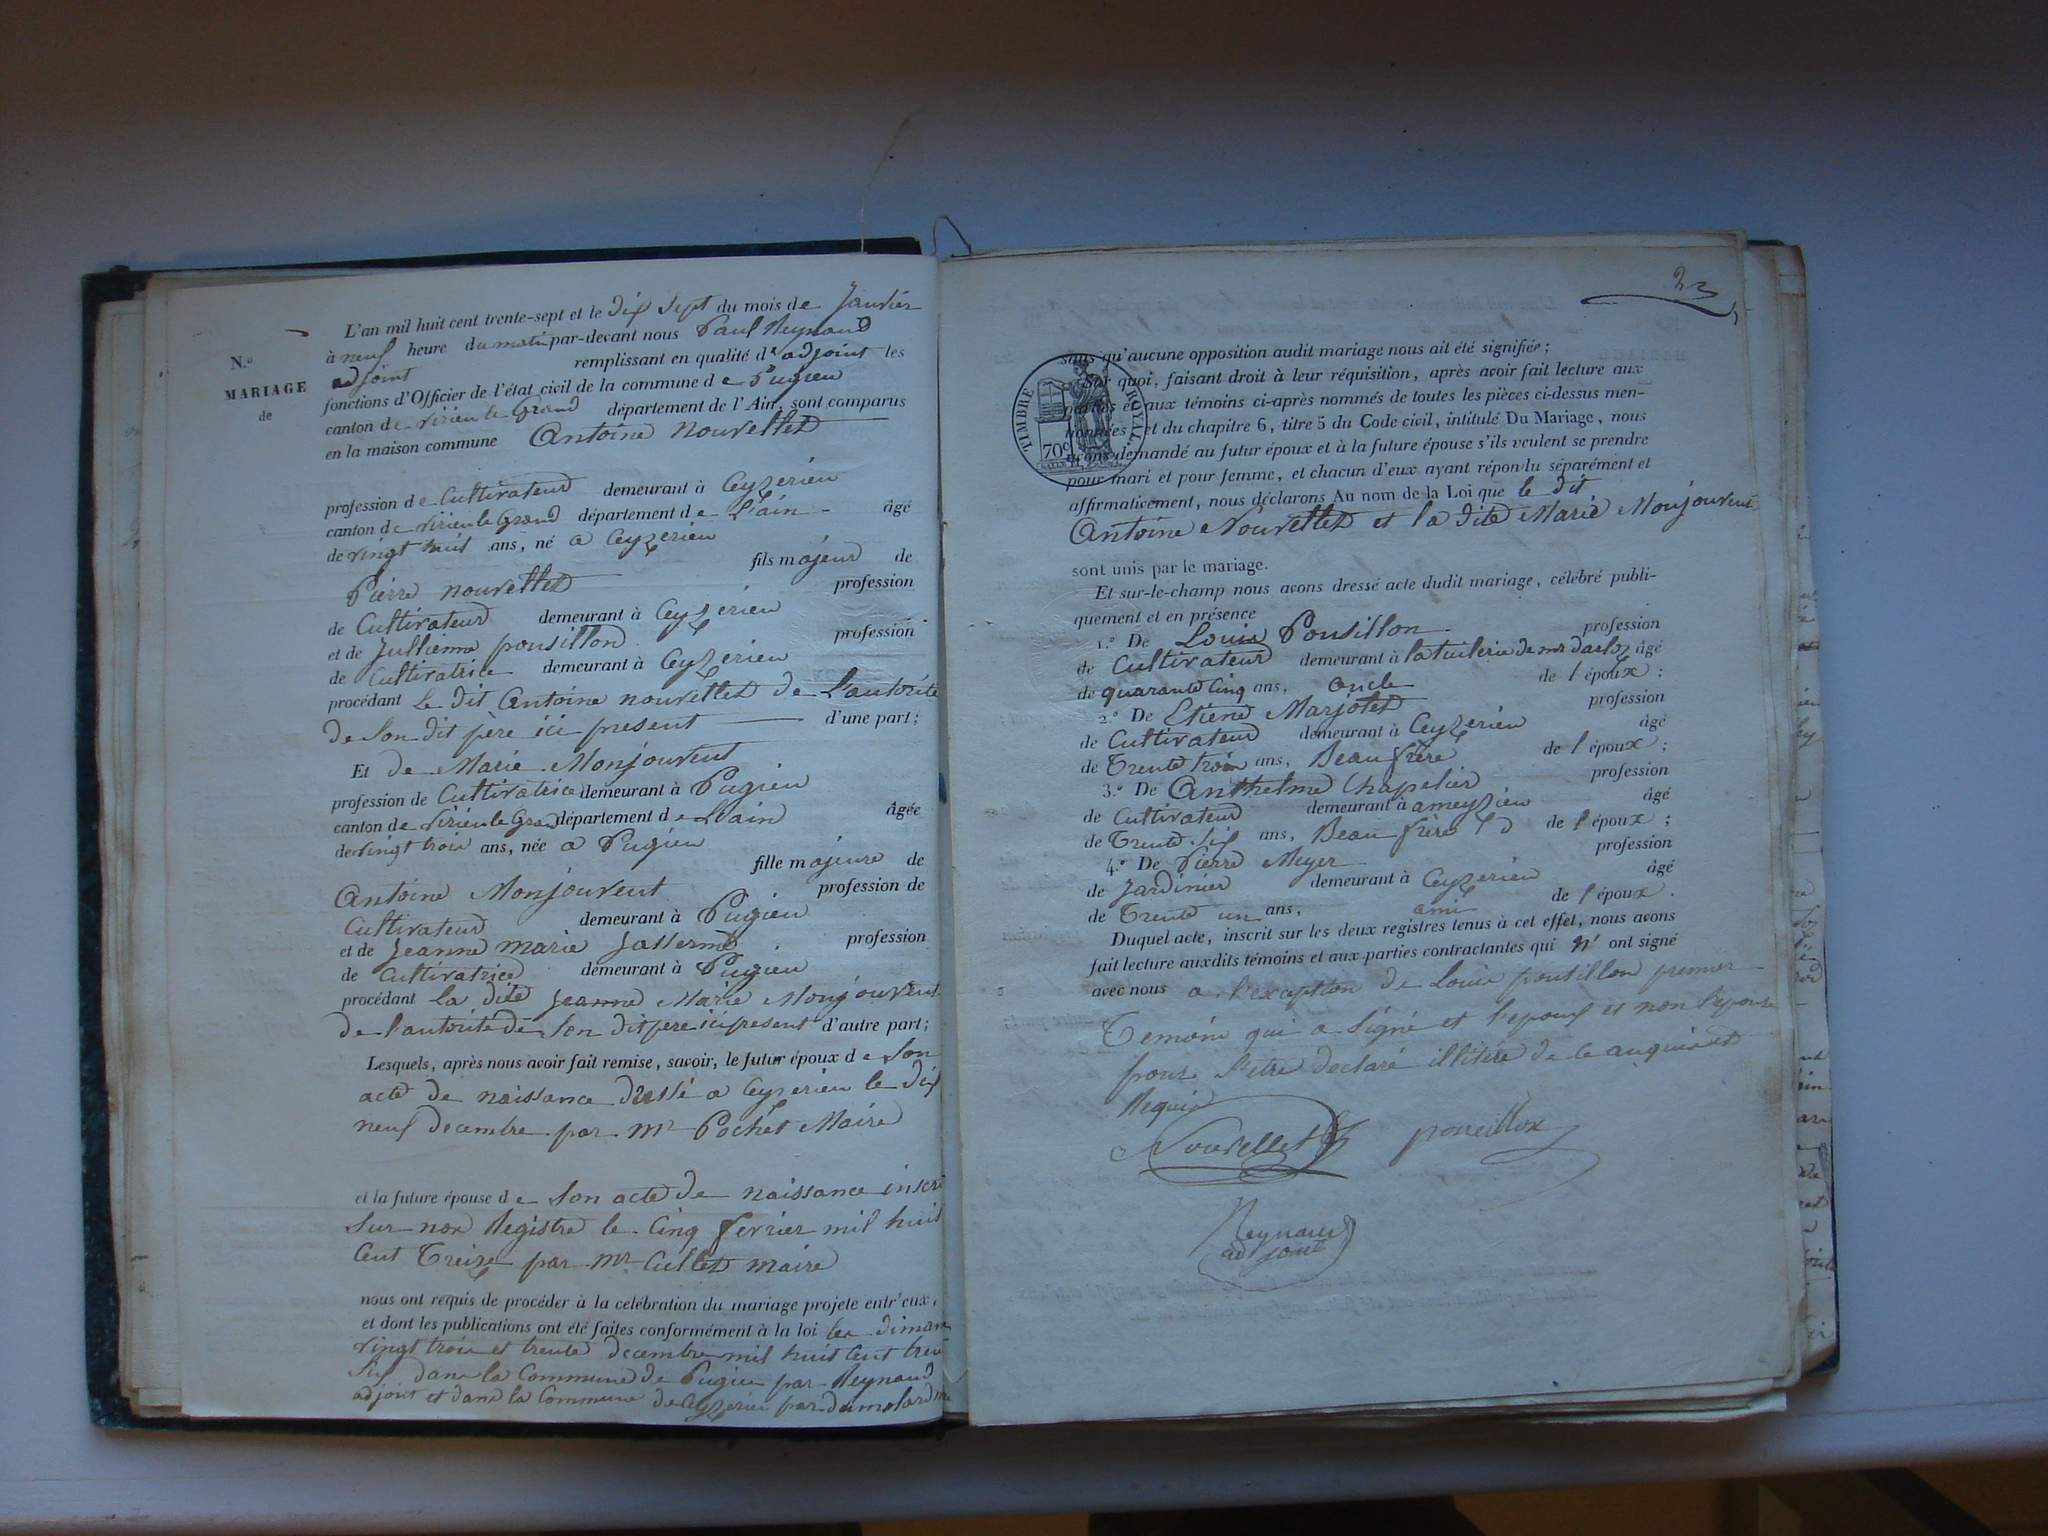 N.o
MARIAGE
de
L'an mil huit cent trente-sept et le dix sept du mois de Janvier
à neuf heure du matin par-devant nous Paul Reynaud
adjoint remplissant en qualité d'adjoint les
fonctions d'Officier de l'état civil de la commune de Pugieu
canton de virieu le Grand département de l'Ain, sont comparus
en la maison commune Antoine nouvellet
profession de Cultivateur demeurant à Ceyzerieu
canton de virieu le Grand département de L'ain - âgé
de vingt huit ans, né a Ceyzerieu
fils majeur de
Pierre nouvellet profession
de Cultivateur demeurant à Ceyzerieu
et de Jullienne pousillon profession
de Cultivatrice demeurant à Ceyzerieu
procédant le dit Antoine nouvellet de L'autorité
de Son dit père ici present d'une part;
Et de Marie Monjouvent
profession de Cultivatrice demeurant à Pugieu
canton de virieu le Grand département de L'ain âgée
de vingt trois ans, née a Pugieu
fille majeure de
Antoine Monjouvent profession de
Cultivateur demeurant à Pugieu
et de Jeanne marie profession
de Cultivatrice demeurant à Pugieu
procédant la dite Jeanne Marie Monjouvent
de l'autorité de Son dit pere ici present d'autre part;
Lesquels, après nous avoir fait remise, savoir, le futur époux de Son
acte de naissance dressé a Ceyzerieu le dix
neuf decembre par mr Pochet Maire
et la future épouse de Son acte de naissance inscri
Sur nos Registre le Cinq fevrier mil huit
Cent Treize par mr Cullet maire
nous ont requis de procéder à la celébration du mariage projeté entr'eux,
et dont les publications ont été faites conformément à la loi les diman
vingt trois et trente decembre mil huit Cent tren
Six dans la Commune de Pugieu par Reynaud
adjoint et dans la Commune de Ceyzerieu par dumolard
23
TIMBRE ROYAL
70c
sans qu'aucune opposition audit mariage nous ait été signifiée;
Sur quoi, faisant droit à leur réquisition, après avoir fait lecture aux
parties et aux témoins ci-après nommés de toutes les pièces ci-dessus men-
tionnées, et du chapitre 6, titre 5 du Code civil, intitulé Du Mariage, nous
avons demandé au futur époux et à la future épouse s'ils veulent se prendre
pour mari et pour femme, et chacun d'eux ayant répondu séparément et
affirmativement, nous déclarons Au nom de la Loi que le dit
Antoine Nouvellet et la dite Marie Monjouvent
sont unis par le mariage.
Et sur-le-champ nous avons dressé acte dudit mariage, célébré publi-
quement et en présence
1.o De Louis Pousillon profession
de Cultivateur demeurant à la tuilerie de mr âgé
de quarante Cinq ans, oncle de l'époux;
2.o De Etiene Marjolet profession
de Cultivateur demeurant à Ceyzerieu âgé
de Trente trois ans, Beau frère de l'époux;
3.o De Anthelme Chapelier profession
de Cultivateur demeurant à ameyzieu âgé
de Trente Six ans, Beau frère de l'époux;
4.o De Pierre Meyer profession
de Jardinier demeurant à Ceyzerieu âgé
de Trente un ans, ami de l'époux.
Duquel acte, inscrit sur les deux registres tenus à cet effet, nous avons
fait lecture auxdits témoins et aux parties contractantes qui n' ont signé
avec nous a l'exception de Louis pousillon premier
Temoin qui a Signé et l'epoux et non l'epouse
pour S'etre declaré illitéré de ce
Requis
Nouvellet
Reynaud
adjoint